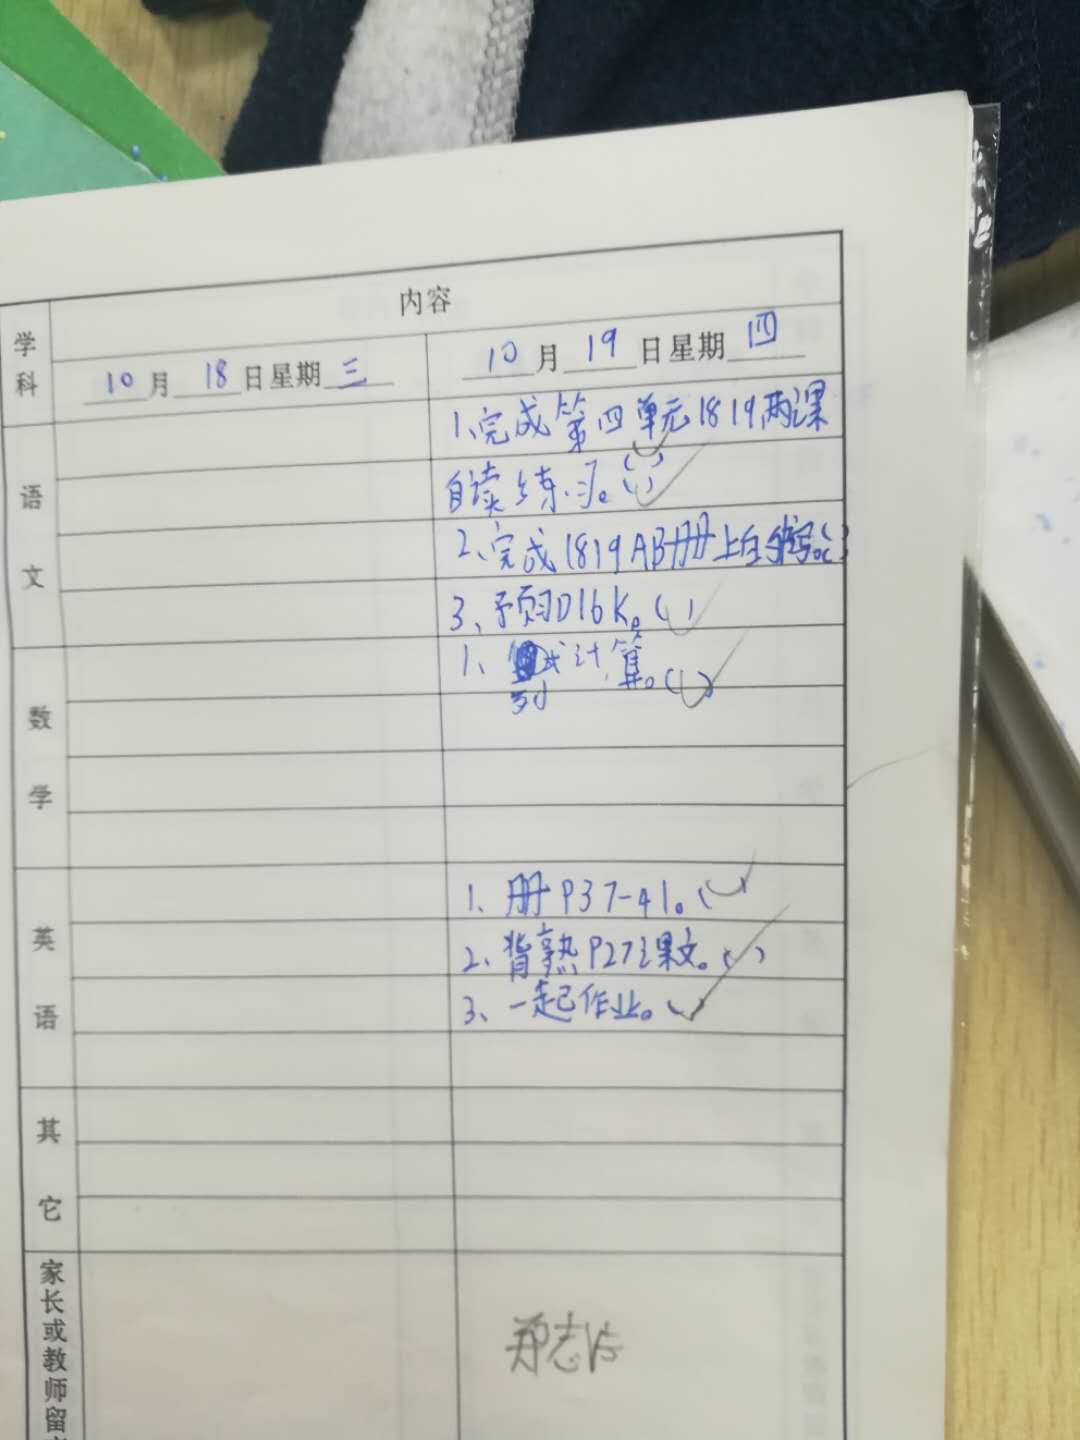 学科
内容
10月18日星期三
10月19日星期四
语文
1、完成第四单元1819两课
自读练习。( )
2、完成1819AB册上白 写。( )
3、预习D16K。( )
数学
1、列式计算。( )
英语
1、册P37-41。( )
2、背熟P27课文。( )
3、一起作业。
其它
家长或教师留
郑志